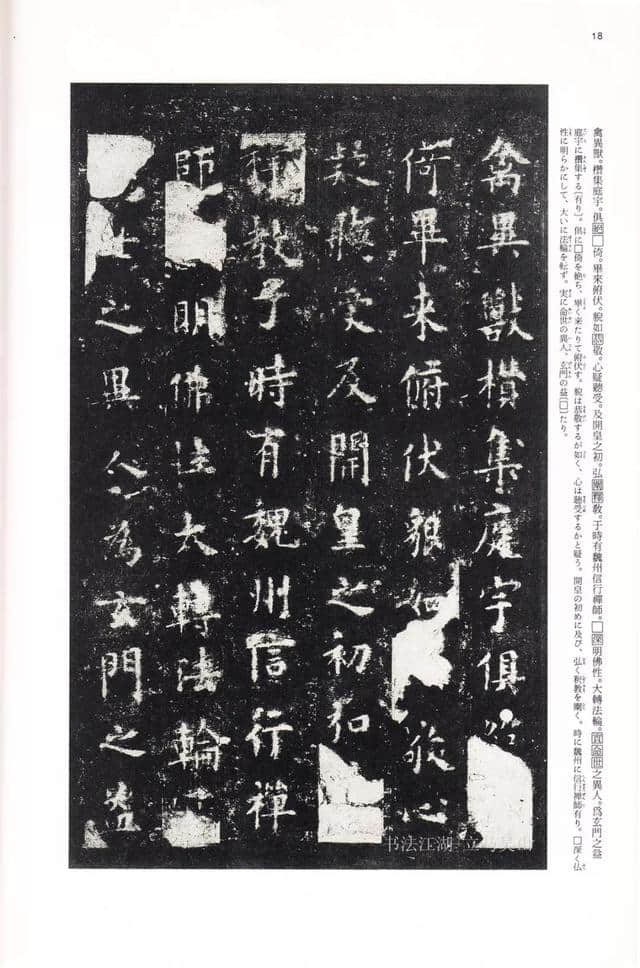 18
禽異獸。欑集庭宇。俱絶□倚。畢來俯伏。貌如恭敬。心疑聽受。及開皇之初。弘闡釋教。于時有魏州信行禪師。□深明佛性。大轉法輪。實命世之異人。爲玄門之益
庭宇に欑集する[有り]。俱に□倚を絶ち、畢く来たりて俯伏す。貌は恭敬するが如く、心は聽受するかと疑う。開皇の初めに及び、弘く釈教を闡く。時に魏州に信行禅師有り。□深く仏
性に明らかにして、大いに法輪を転ず。実に命世の異人、玄門の益[□]たり。
禽異獸欑集庭宇俱絶
倚畢來俯伏貌如敬心
疑聽受及開皇之初弘
釋教于時有魏州信行禪
師明佛性大轉法輪
世之異人爲玄門之益
书法江湖